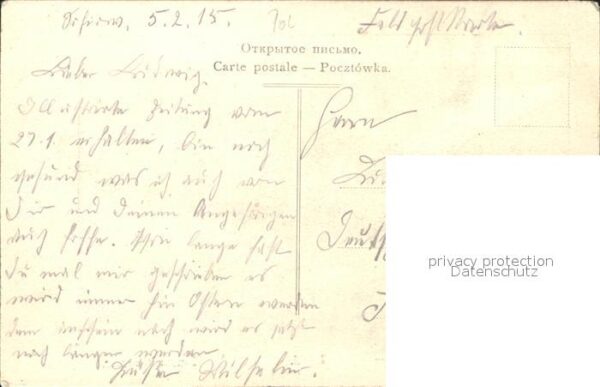 5.2.15.
Feldpostkarte.
Открытое письмо.
Carte postale — Pocztówka.
Lieber Ludwig.
Illustrierte Zeitung vom
27.1. erhalten, bin noch
gesund was ich auch von
Dir und deinen Angehörigen
auch hoffe. Schon lange hast
Du mal mir geschrieben es
wird immer hin Ostern werden
dem Anschein nach wird es jetzt
noch länger werden
Wilhelm.
Herrn
privacy protection
Datenschutz